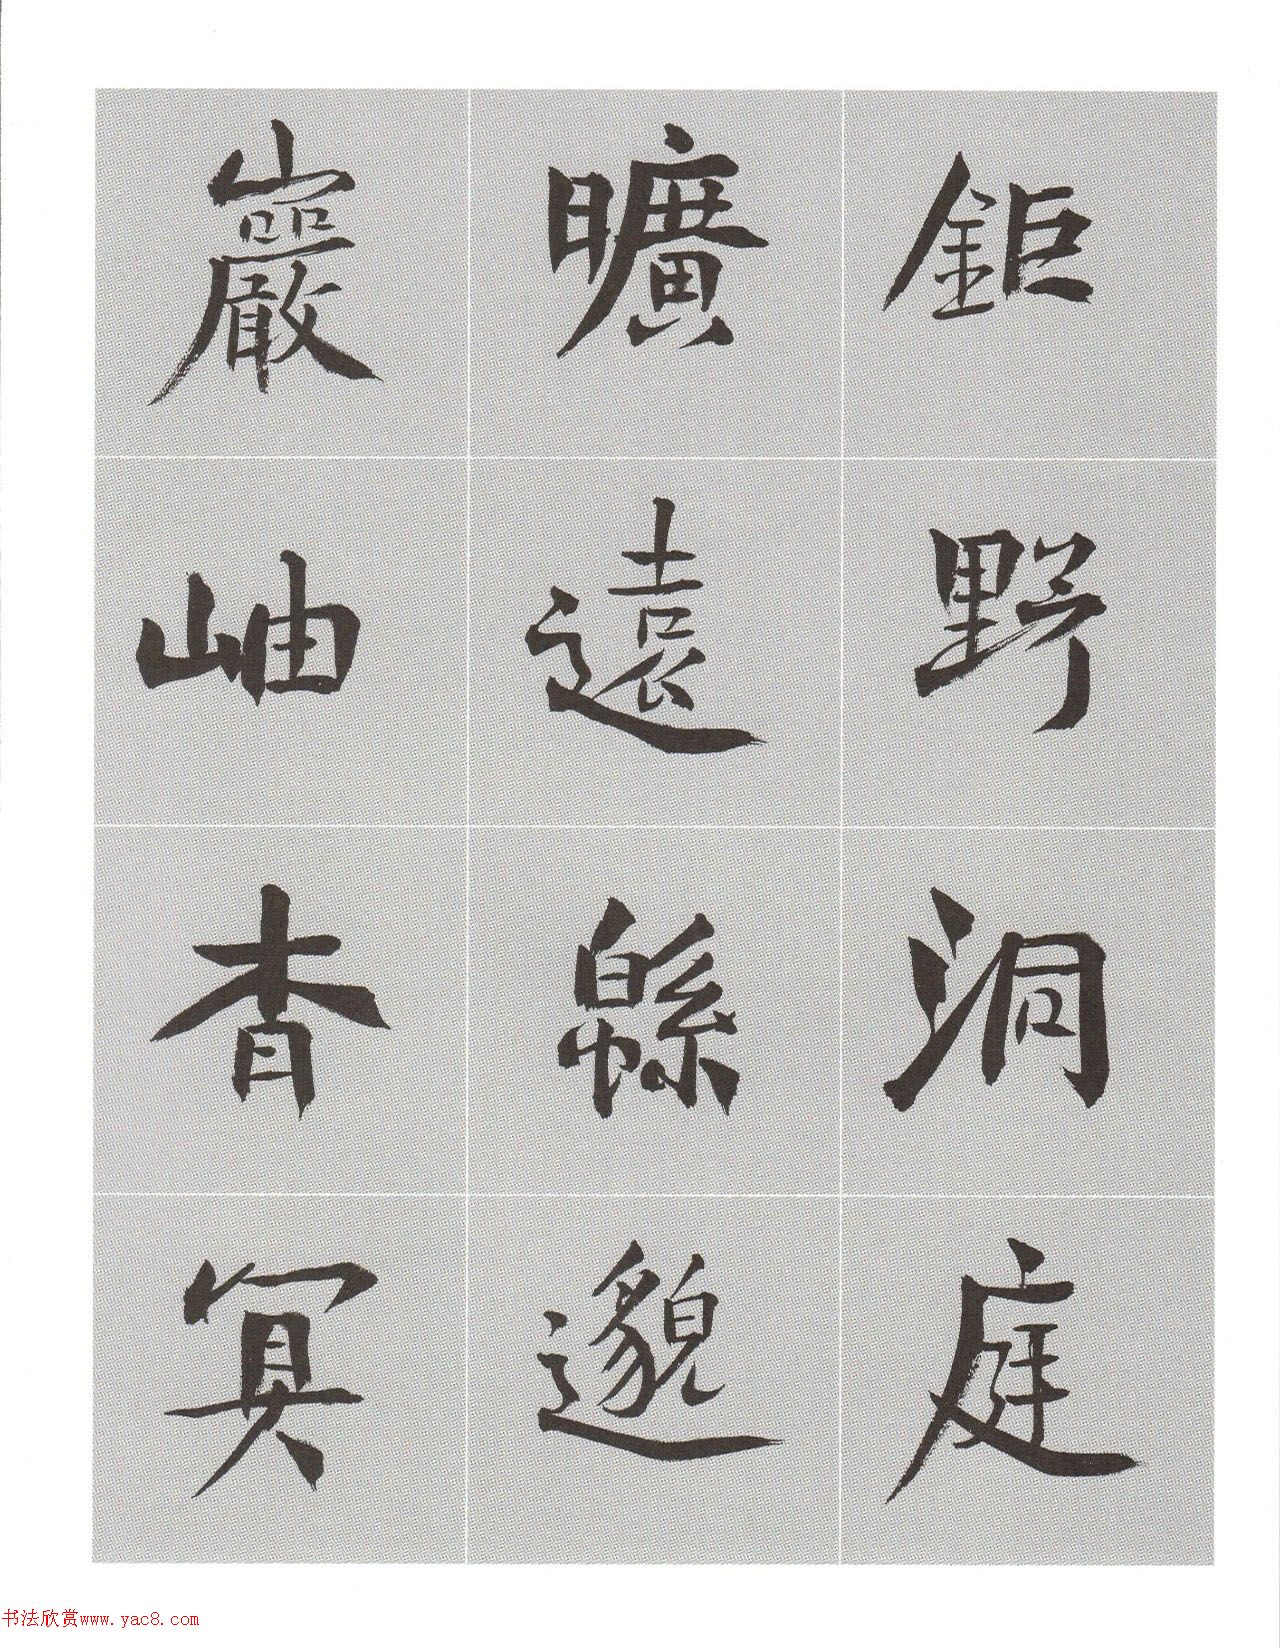 鉅野洞庭
曠遠緜邈
巖岫杳冥
书法欣赏www.yac8.com